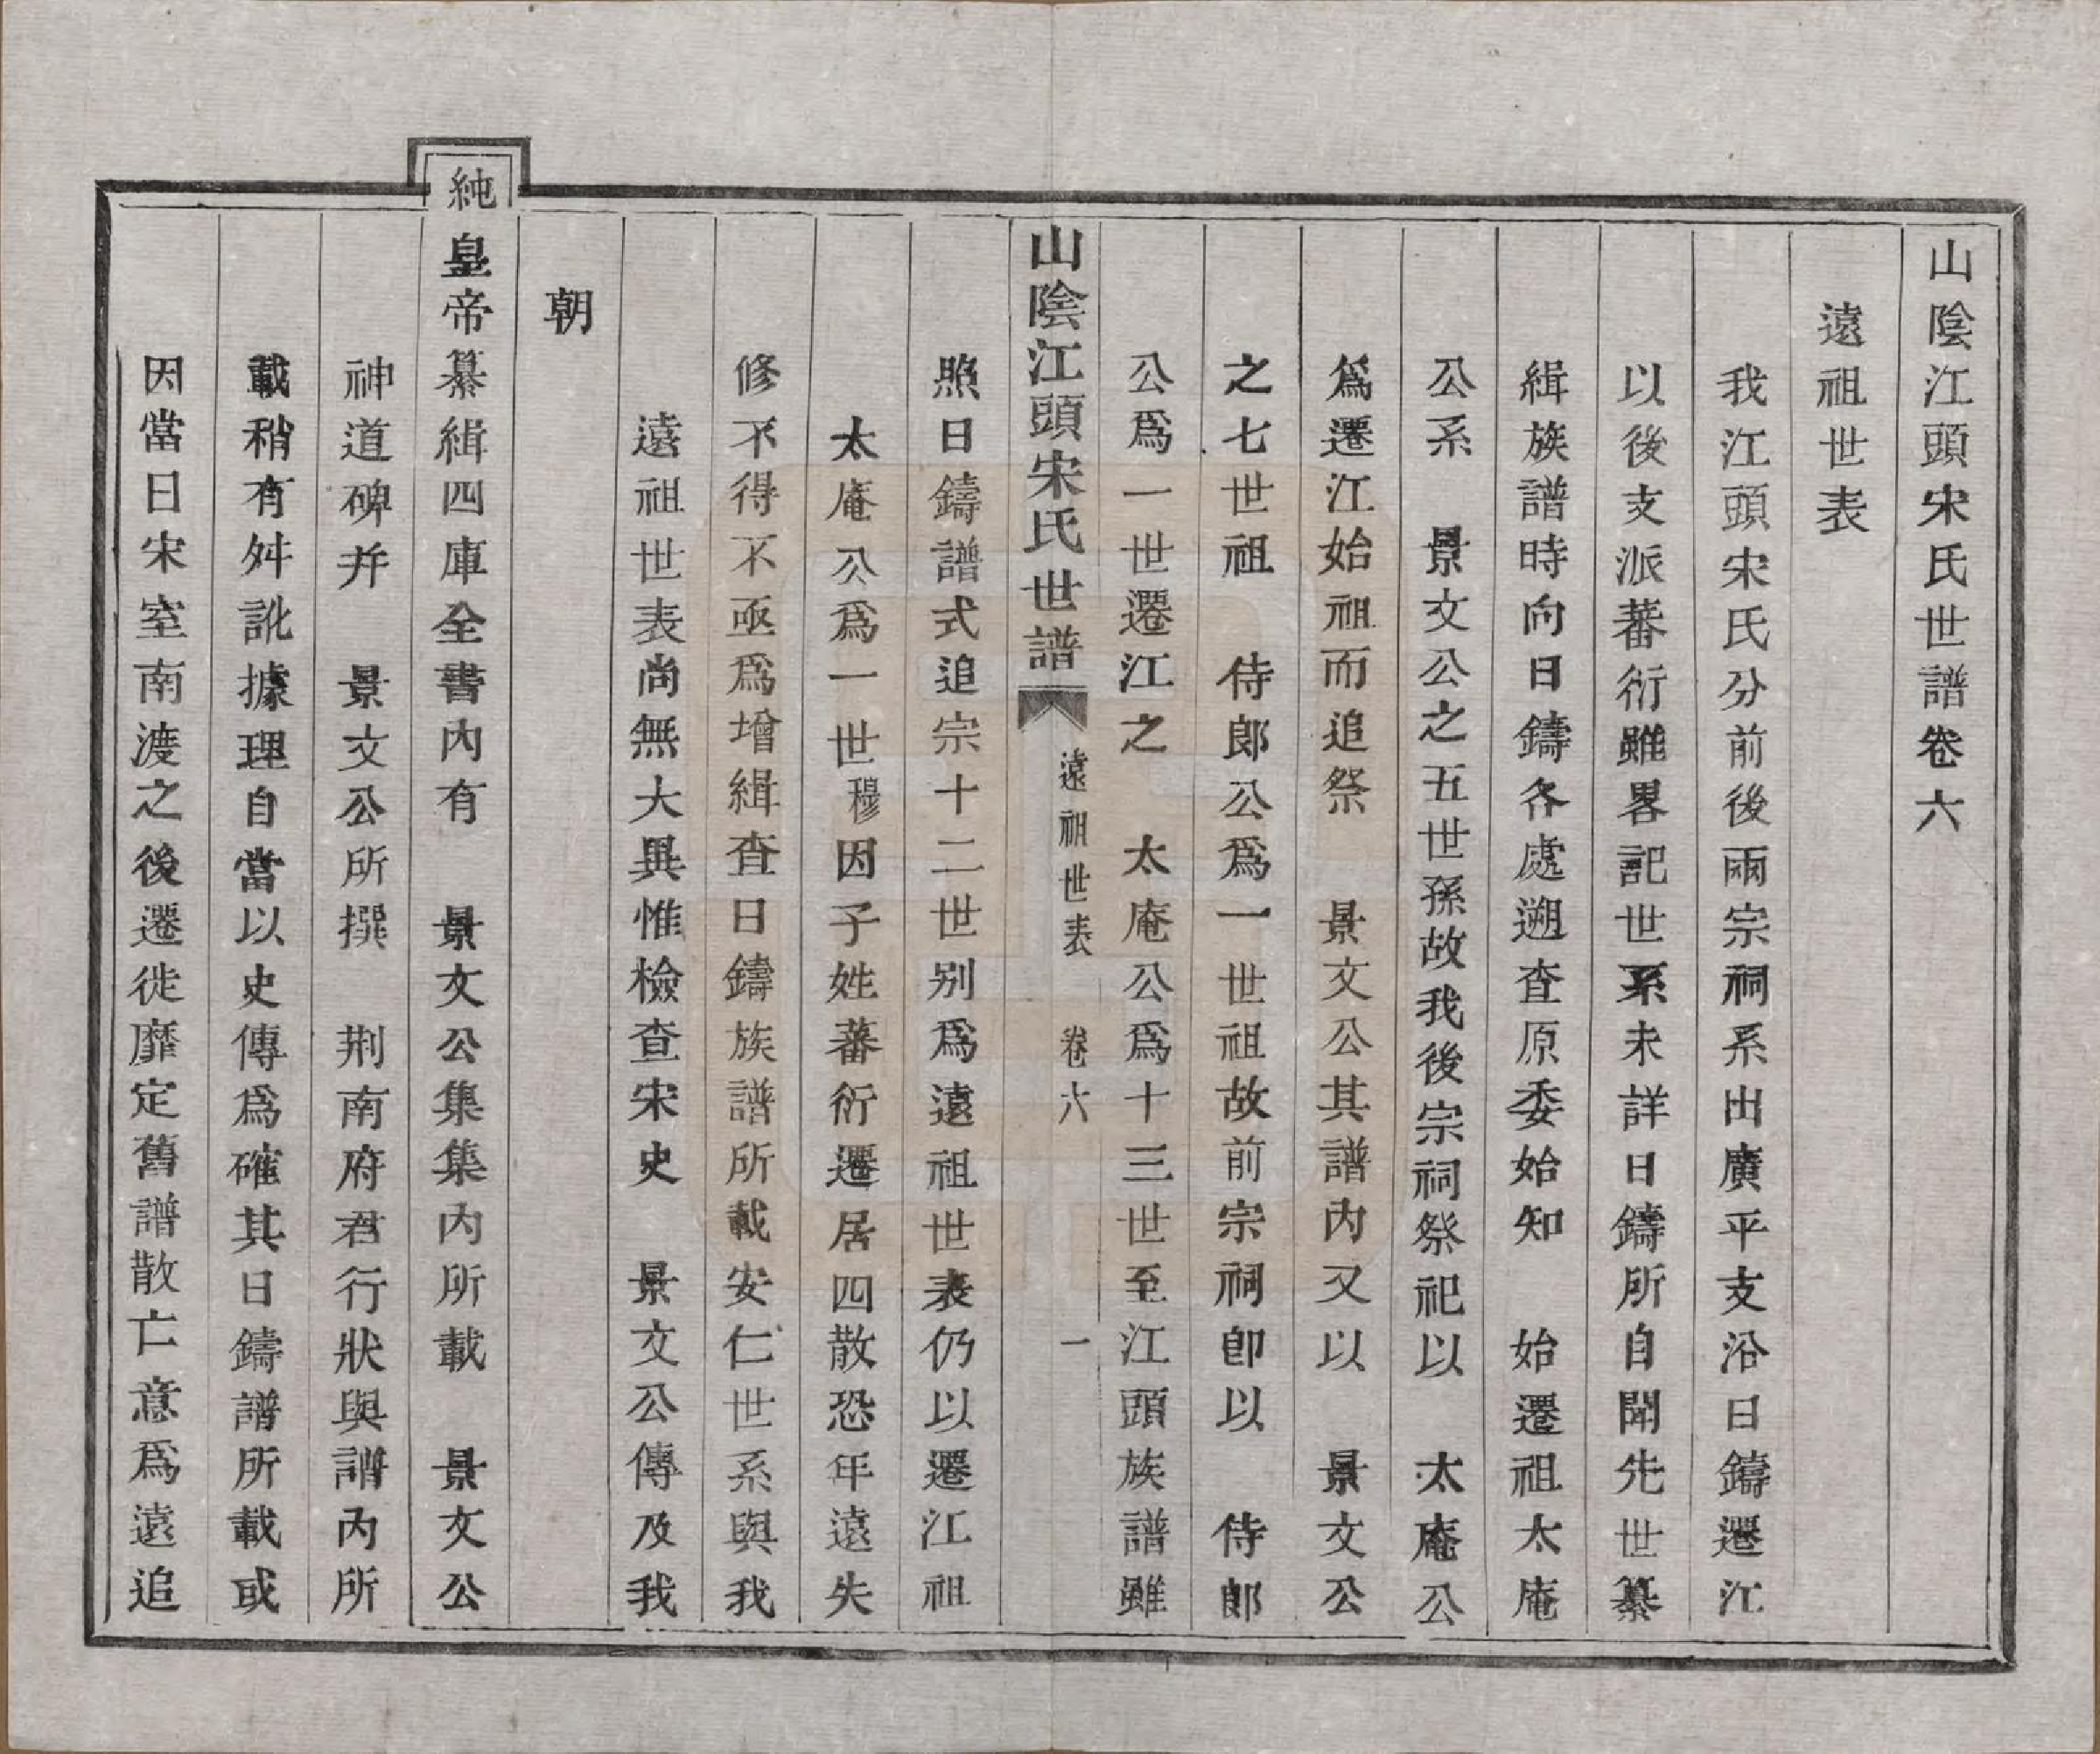 山陰江頭宋氏世譜卷六
遠祖世表
我江頭宋氏分前後兩宗祠系出廣平支沿日鑄遷江
以後支派蕃衍雖畧記世系未詳日鑄所自聞先世纂
緝族譜時向日鑄各處遡查原委始知　始遷祖太庵
公系　景文公之五世孫故我後宗祠祭祀以　太庵公
爲遷江始祖而追祭　景文公其譜內又以　景文公
之七世祖　侍郎公爲一世祖故前宗祠卽以　侍郎
公爲一世遷江之　太庵公爲十三世至江頭族譜雖
山陰江頭宋氏世譜　遠祖世表　卷六　一
照日鑄譜式追宗十二世别爲遠祖世表仍以遷江祖
太庵公爲一世穆因子姓蕃衍遷居四散恐年遠失
修不得不亟爲增緝查日鑄族譜所載安仁世系與我
遠祖世表尚無大異惟檢查宋史　景文公傳及我
朝
純皇帝纂緝四庫全書內有　景文公集集內所載　景文公
神道碑并　景文公所撰　荆南府君行狀與譜內所
載稍有舛訛據理自當以史傳爲確其日鑄譜所載或
因當日宋室南渡之後遷徙靡定舊譜散亡意爲遠追